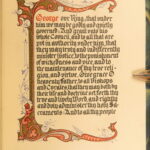 George our King, that under
him we may be godly and quietly
governed: And grant unto his
whole Council, and to all that are
put in authority under him, that
they may truly and indifferently
minister justice, to the punishment
of wickedness and vice, and to
the maintenance of thy true reli-
gion, and virtue. Give grace O
heavenly Father, to all Bishops
and Curates, that they may both by
their life and doctrine set forth thy
true and lively Word, and rightly
and duly administer thy holy Sa-
craments: And to all thy people